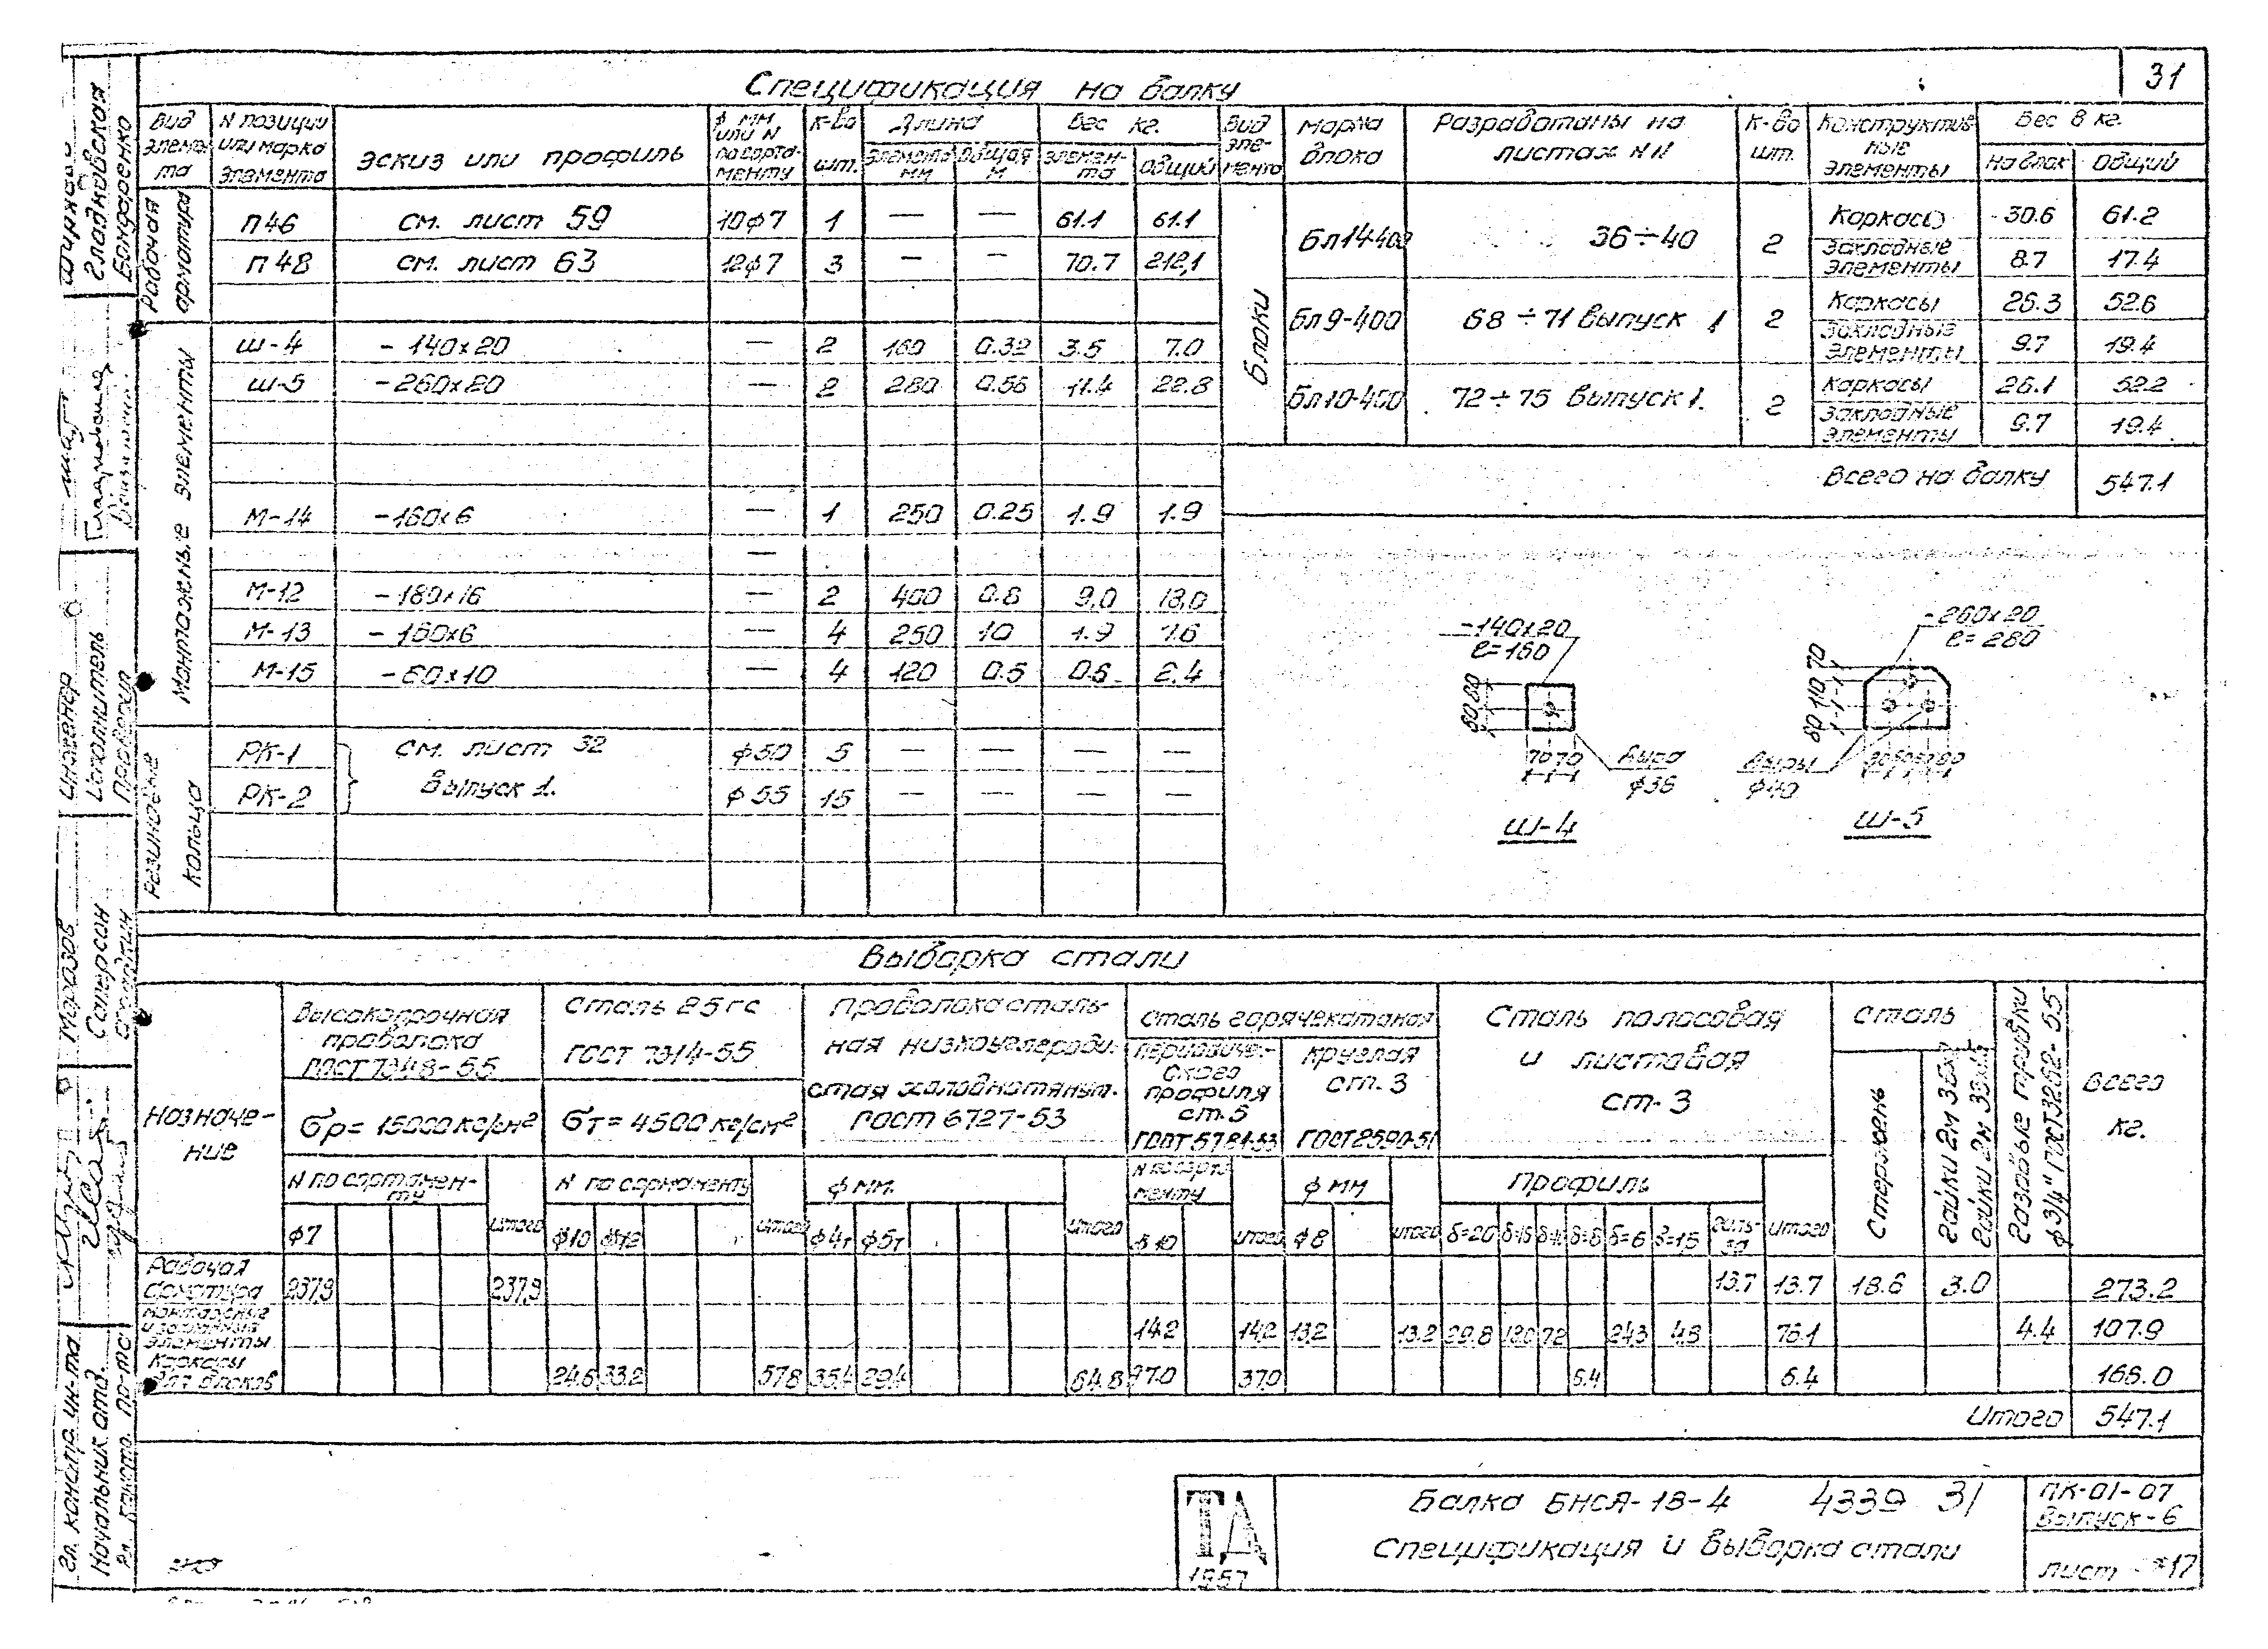 31
Спецификация на балку
Вид элемента | N позиции или марка элемента | Эскиз или профиль | ф мм или N по сортаменту | К-во шт. | Длина элемента мм | Длина общая м | Вес кг. элемента | Вес кг. общий
Рабочая арматура
П46 | см. лист 59 | 10ф7 | 1 | — | — | 61.1 | 61.1
П48 | см. лист 63 | 12ф7 | 3 | — | — | 70.7 | 212,1
Монтажные элементы
Ш-4 | - 140х20 | — | 2 | 160 | 0.32 | 3.5 | 7.0
Ш-5 | - 260х20 | — | 2 | 280 | 0.56 | 11.4 | 22.8
М-14 | - 160х6 | — | 1 | 250 | 0.25 | 1.9 | 1.9
—
М-12 | - 180х16 | — | 2 | 400 | 0.8 | 9,0 | 18,0
М-13 | - 160х6 | — | 4 | 250 | 10 | 1.9 | 7.6
М-15 | - 60х10 | — | 4 | 120 | 0.5 | 0.6 | 2.4
Резиновые кольца
РК-1 | см. лист 32 | ф50 | 5 | — | — | — | —
РК-2 | выпуск 1. | ф55 | 15 | — | — | — | —
Вид элемента | Марка блока | Разработаны на листах NN | К-во шт. | Конструктивные элементы | Вес в кг. на блок | Общий
Блоки
Бл14-400 | 36÷40 | 2 | Каркасы | 30.6 | 61.2
Закладные элементы | 8.7 | 17.4
Бл9-400 | 68÷71 выпуск 1 | 2 | Каркасы | 26.3 | 52.6
Закладные элементы | 9.7 | 19.4
Бл10-400 | 72÷75 выпуск 1. | 2 | Каркасы | 26.1 | 52.2
Закладные элементы | 9.7 | 19.4
Всего на балку | 547.1
-140х20
ℓ=160
80 80
70 70
дыра
ф36
Ш-4
-260х20
ℓ=280
60 110 70
дыры
ф40
Ш-5
Выборка стали
Назначение
Высокопрочная проволока ГОСТ 7348-55
σр= 15000 кг/см²
N по сортаменту
ф7 | Итого
Сталь 25гс
ГОСТ 7314-55
σт= 4500 кг/см²
N по сортаменту
ф10 | ф12 | Итого
Проволока стальная низкоуглеродистая холоднотянут.
ГОСТ 6727-53
ф мм.
ф4т | ф5т | Итого
Сталь горячекатаная
периодического профиля ст.5
ГОСТ 5781-53
N по сортаменту
10 | Итого
круглая ст. 3
ГОСТ 2590-51
ф мм
ф8 | Итого
Сталь полосовая и листовая ст. 3
Профиль
δ=20 | δ=16 | δ=6 | δ=15 | гильза | Итого
Сталь
Стержень
Гайки 2м
Гайки 2м
Газовые трубки ф3/4" ГОСТ 3262-55
Всего кг.
Рабочая арматура | 237,9 | 237,9 | 13.7 | 13.7 | 18.6 | 3.0 | 273.2
Монтажные и закладные элементы | 14.2 | 14.2 | 13.2 | 13.2 | 29.8 | 18.0 | 7.2 | 24.3 | 76.1 | 4.4 | 107.9
Каркасы для блоков | 24.6 | 33.2 | 57.8 | 35.4 | 29.4 | 64.8 | 37.0 | 37.0 | 6.4 | 6.4 | 166.0
Итого | 547.1
ТД
1957
Балка БНСЯ-18-4 4339 31
Спецификация и выборка стали
ПК-01-07
Выпуск-6
Лист 17
Гл. констр. ин-та
Начальник отд.
Гл. констр. пр-та
Морозов
Саперсон
Инженер
Исполнитель
Проверил
Гладковская
Бондаренко